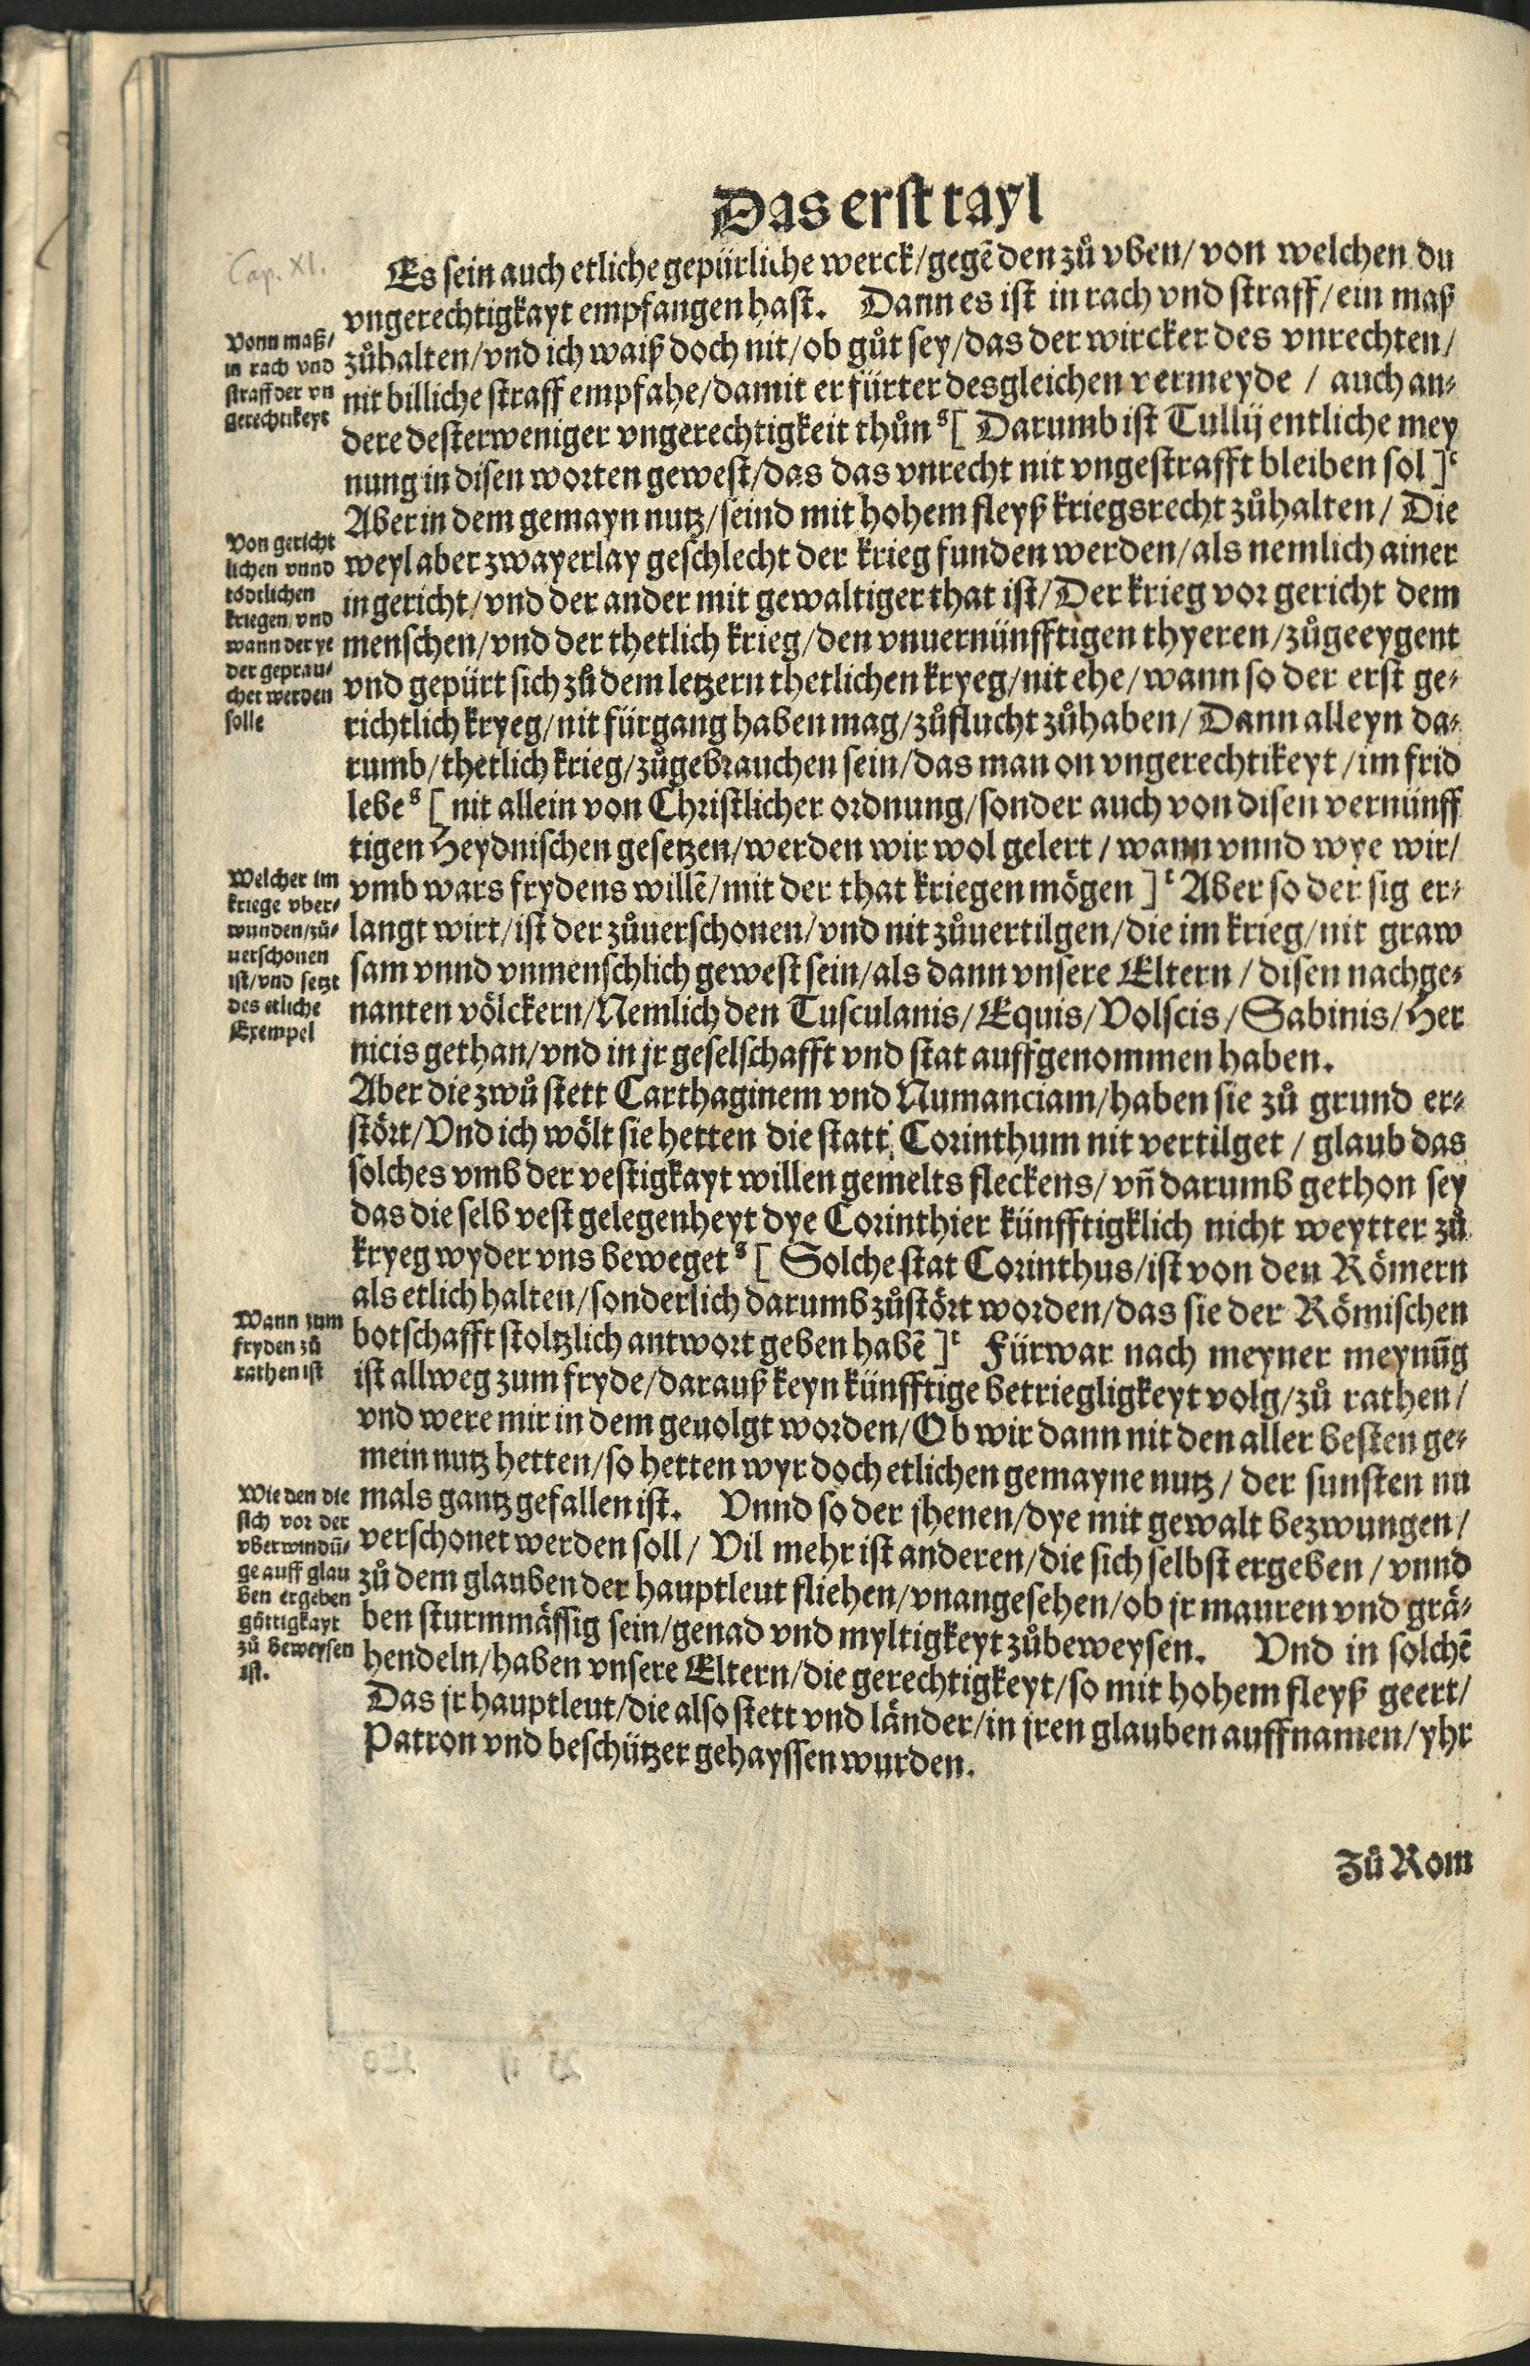 Das erst tayl
Cap. XI.
Es sein auch etliche gepürliche werck/gegē den zů vben/von welchen du
vngerechtigkayt empfangen hast. Dann es ist in rach vnd straff/ein maß
zůhalten/vnd ich waiß doch nit/ob gůt sey/das der wircker des vnrechten/
nit billiche straff empfahe/damit er fürter desgleichen vermeyde / auch an⸗
dere desterweniger vngerechtigkeit thůn ˢ[ Darumb ist Tullij entliche mey
nung in disen worten gewest/das das vnrecht nit vngestrafft bleiben sol ]ᵗ
Aber in dem gemayn nutz/seind mit hohem fleyß kriegsrecht zůhalten/ Die
weyl aber zwayerlay geschlecht der krieg funden werden/als nemlich ainer
in gericht/vnd der ander mit gewaltiger that ist/Der krieg vor gericht dem
menschen/vnd der thetlich krieg/den vnuernünfftigen thyeren/zůgeeygent
vnd gepürt sich zů dem letzern thetlichen kryeg/nit ehe/wann so der erst ge⸗
richtlich kryeg/nit fürgang haben mag/zůflucht zůhaben/Dann alleyn da⸗
rumb/thetlich krieg/zůgebrauchen sein/das man on vngerechtikeyt/im frid
lebe ˢ [ nit allein von Christlicher ordnung/sonder auch von disen vernünff
tigen Heydnischen gesetzen/werden wir wol gelert / wann vnnd wye wir/
vmb wars frydens willē/mit der that kriegen mögen ]ᵗ Aber so der sig er⸗
langt wirt/ist der zůuerschonen/vnd nit zůuertilgen/die im krieg/nit graw
sam vnnd vnmenschlich gewest sein/als dann vnsere Eltern / disen nachge⸗
nanten völckern/Nemlich den Tusculanis/Equis/Volscis/Sabinis/Her
nicis gethan/vnd in jr geselschafft vnd stat auffgenommen haben.
Aber die zwů stett Carthaginem vnd Numanciam/haben sie zů grund er⸗
stört/Vnd ich wölt sie hetten die statt Corinthum nit vertilget / glaub das
solches vmb der vestigkayt willen gemelts fleckens/vñ darumb gethon sey
das die selb vest gelegenheyt dye Corinthier künfftigklich nicht weytter zů
kryeg wyder vns beweget ˢ [ Solche stat Corinthus/ist von den Römern
als etlich halten/sonderlich darumb zůstört worden/das sie der Römischen
botschafft stoltzlich antwort geben habē ]ᵗ Fürwar nach meyner meynūg
ist allweg zum fryde/darauß keyn künfftige betriegligkeyt volg/zů rathen/
vnd were mir in dem geuolgt worden/Ob wir dann nit den aller besten ge⸗
mein nutz hetten/so hetten wyr doch etlichen gemayne nutz / der sunsten nu
mals gantz gefallen ist. Vnnd so der jhenen/dye mit gewalt bezwungen/
verschonet werden soll/ Vil mehr ist anderen/die sich selbst ergeben / vnnd
zů dem glauben der hauptleut fliehen/vnangesehen/ob jr mauren vnd grä⸗
ben sturmmässig sein/genad vnd myltigkeyt zůbeweysen. Vnd in solchē
hendeln/haben vnsere Eltern/die gerechtigkeyt/so mit hohem fleyß geert/
Das jr hauptleut/die also stett vnd länder/in jren glauben auffnamen/yhr
Patron vnd beschützer gehayssen wurden.
Vonn maß/
in rach vnd
straff der vn
gerechtikeyt
Von gericht
lichen vnnd
tödtlichen
kriegen/vnd
wann der ye
der geprau⸗
chet werden
solle
Welcher im
kriege vber⸗
wunden/zů⸗
uerschonen
ist/vnd setzt
des etliche
Exempel
Wann zum
fryden zů
rathen ist
Wie den die
sich vor der
vberwindū⸗
ge auff glau
ben ergeben
göttigkayt
zů beweysen
ist.
Zů Rom